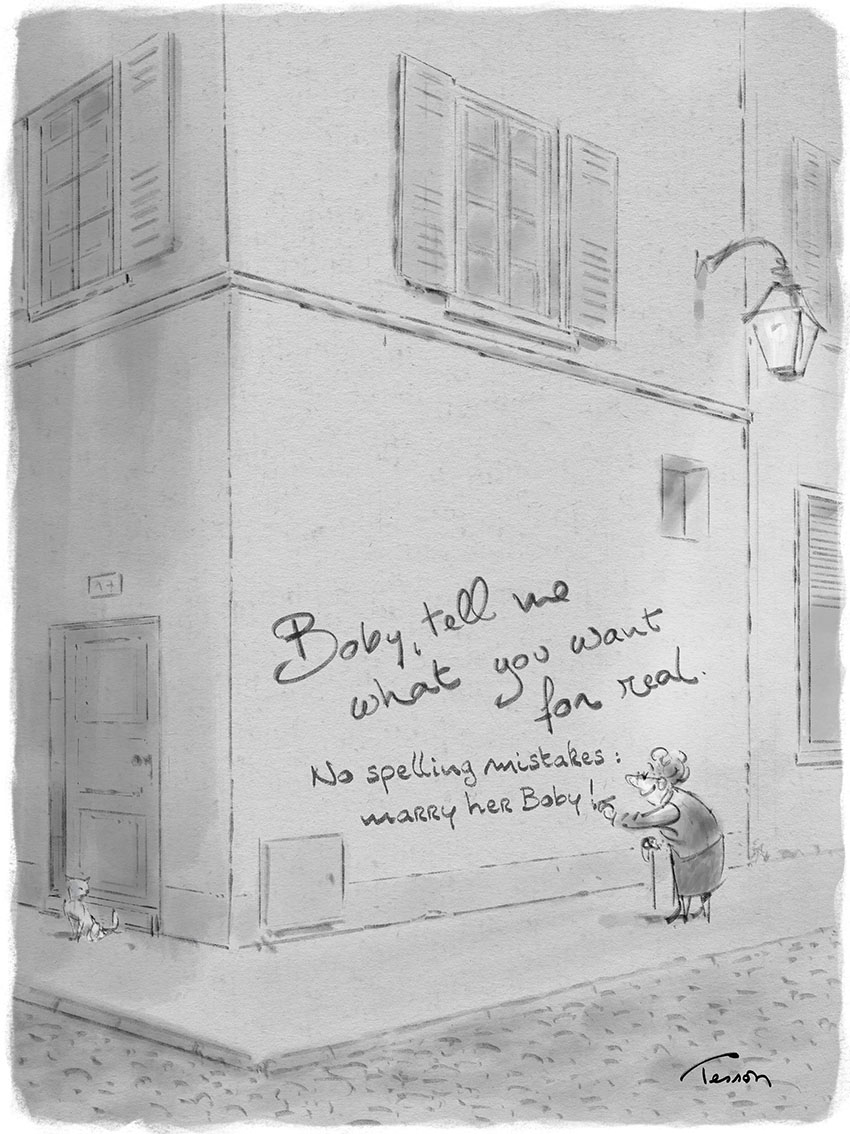 Boby, tell me
what you want
for real.
No spelling mistakes:
marry her Boby!
Tesson